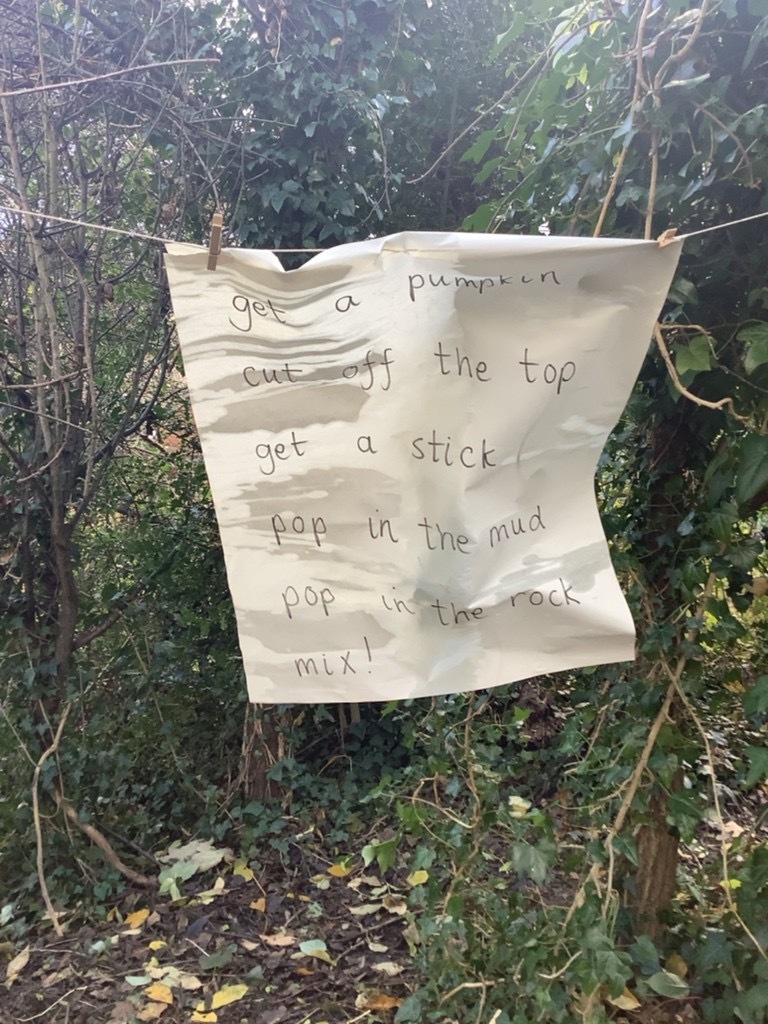 get a pumpkin
cut off the top
get a stick
pop in the mud
pop in the rock
mix!